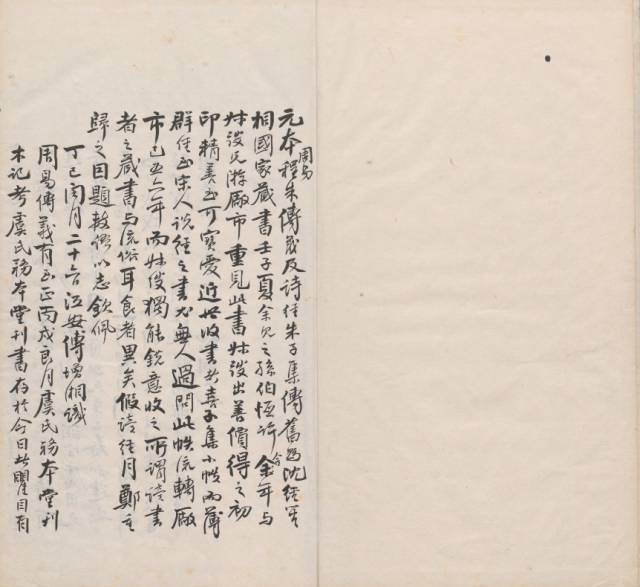 元本周易程朱傳義及詩經朱子集傳舊為沈經笙
相國家藏書壬子夏余見之孫伯恆許今年與
叔弢氏游廠市重見此書叔弢出善價得之初
印精美至可寶愛近世收書者喜子集小帙而薄
群經至宋人說經之書尤無人過問此帙流轉廠
市已五六年而叔弢獨能銳意收之所謂讀書
者之藏書與流俗耳食者異矣假讀經月鄭重
歸之因題數語以志欽佩
丁巳閏月二十六日江安傅增湘識
周易傳義有至正丙戌良月虞氏務本堂刊
木記考虞氏務本堂刊書存於今日者瞿目有